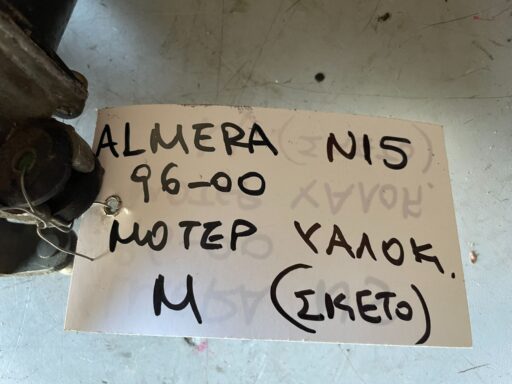 ALMERA N15
96-00
ΜΟΤΕΡ ΥΑΛΟΚ.
Μ (ΣΚΕΤΟ)